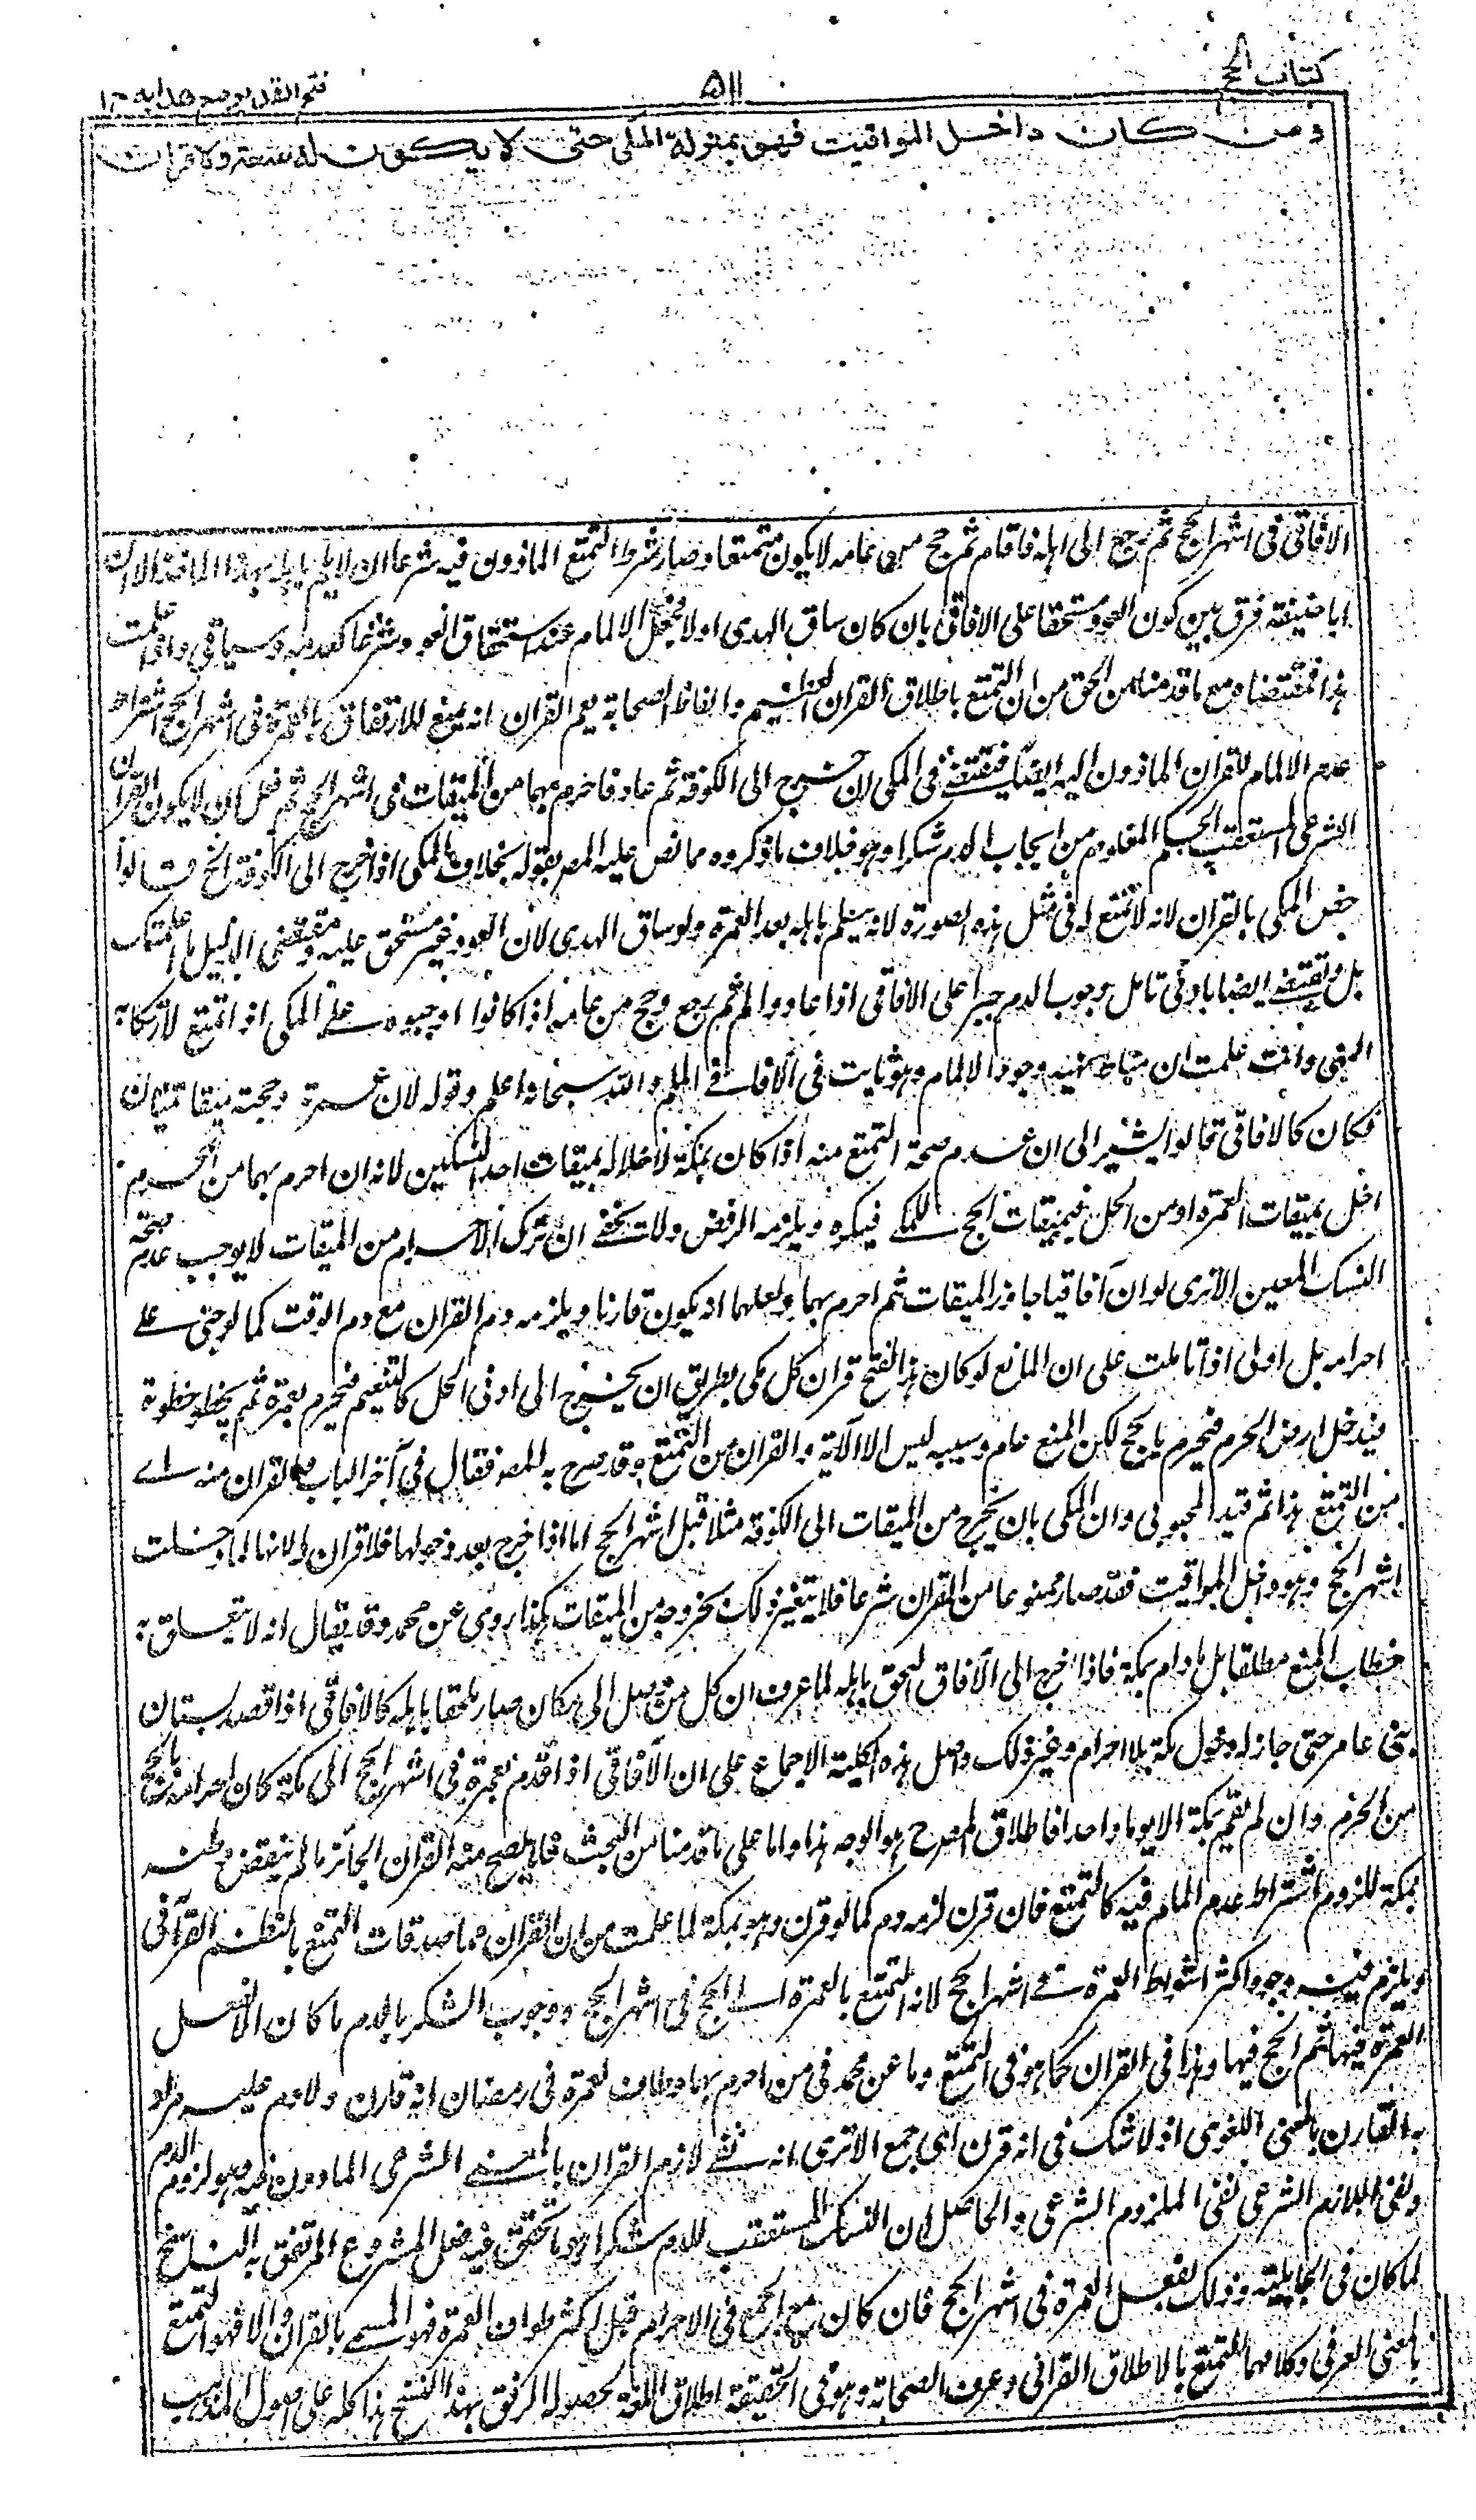 كتاب الحج
٥١١
فتح القدير مع هدايه ج ١
ومن كان داخل المواقيت فهو بمنزلة المكى حتى لا يكون له متعة ولا قران
الآفاقى فى اشهر الحج ثم رجع الى اهله فاقام ثم حج من عامه لا يكون متمتعا وصار شرط التمتع الماذون فيه شرعا ان لا يلم باهله بهذا الماخذ الا ان
ابا حنيفة فرق بين كون العود مستحقا على الآفاقى بان كان ساق الهدى او لا فجعل الالمام عند استحقاق العود شرعا كعدمه وسياتى واذا علمت
هذا فمقتضاه مع ما قدمنا من الحق من ان التمتع باطلاق القرآن العظيم والفاظ الصحابة يعم القران انه يمنع للارتفاق بالعمرة فى اشهر الحج اشتراط
عدم الالمام للقران الماذون اليه ايضا فيقتضى فى المكى لان خرج الى الكوفة ثم عاد فاحرم بهما من الميقات فى اشهر الحج ثم فعل كان لا يكون القران
الشرعى المستعقب الحكم المعلوم من ايجاب الدم شكرا وهو خلاف ما ذكروه مما نص عليه المص بقوله بخلاف المكى اذا خرج الى الكوفة الخ قالوا
خص المكى بالقران لانه لا تمتع له فى مثل هذه الصورة لانه يلم باهله بعد العمرة ولو ساق الهدى لان العود غير مستحق عليه ومقتضى الدليل ما اعلمتك
بل ويقتضى ايضا بادنى تامل وجوب الدم جبرا على الآفاقى اذا عاد والم ثم رجع وحج من عامه اذا كانوا اوجبوه على المكى اذا تمتع لارتكابه
النهى وانت علمت ان مناط نهيه وجود الالمام وهو ثابت فى الآفاقى الملم والله سبحانه اعلم وقوله لان عمرته وحجته ميقاتيتان
فكان كالآفاقى قالوا يشير الى ان عدم صحة التمتع منه اذا كان بمكة لاخلاله بميقات احد النسكين لانه ان احرم بهما من الحرم
اخل بميقات العمرة او من الحل فبميقات الحج للمكى فيكره ويلزمه الرفض ولا يخفى ان ترك الاحرام من الميقات لا يوجب عدم صحة
النسك المعين الا ترى لو ان آفاقيا جاوز الميقات ثم احرم بهما وفعلهما انه يكون قارنا ويلزمه دم القران مع دم الوقت كما لو جنى على
احرامه بل اولى اذا تاملت على ان المانع لو كان هذا لصح قران كل مكى بطريق ان يخرج الى ادنى الحل كالتنعيم فيحرم بعمرة ثم يخطو خطوة
فيدخل ارض الحرم فيحرم بالحج لكن المنع عام وسببه ليس الا الآية والقران من التمتع وقد صرح به المص فقال فى آخر الباب والقران منه اى
من التمتع هذا ثم قيد المحبوبى قران المكى بان يخرج من الميقات الى الكوفة مثلا قبل اشهر الحج اما اذا خرج بعد دخولها فلا قران له لانها لما دخلت
اشهر الحج وهو داخل المواقيت فقد صار ممنوعا من القران شرعا فلا يتغير ذلك بخروجه من الميقات هكذا روى عن محمد وقد يقال انه لا يتعلق به
خطاب المنع مطلقا بل ما دام بمكة فاذا خرج الى الآفاق التحق باهله لما عرف ان كل من وصل الى مكان صار ملحقا باهله كالآفاقى اذا قصد بستان
بنى عامر حتى جاز له دخول مكة بلا احرام وغير ذلك واصل هذه الكلية الاجماع على ان الآفاقى اذا قدم بعمرة فى اشهر الحج الى مكة كان احرامه بالحج
من الحرم وان لم يقم بمكة الا يوما واحدا فاطلاق المص ح هو الوجه هذا واما على ما قدمنا من البحث فلا يصح منه القران الجائز ما لم ينقض وطنه
بمكة للزوم اشتراط عدم المام فيه كالتمتع فان قرن لزمه دم كما لو قرن وهو بمكة لما علمت من ان القران مما صدقات التمتع بالنظم القرآنى
ويلزم فيه وجود اكثر اشواط العمرة فى اشهر الحج لانه المتمتع بالعمرة الى الحج فى اشهر الحج ووجوب الشكر بالدم ما كان الا لفعل
العمرة فيها ثم الحج فيها وهذا فى القران كما هو فى التمتع وما عن محمد فى من احرم بهما وطاف لعمرة فى رمضان انه قارن ولا دم عليه مراد
به القارن بالمعنى اللغوى اذ لا شك فى انه قرن اى جمع الا ترى انه نفى لازم القران بالمعنى الشرعى الماذون فيه وهو لزوم الدم
ونفى اللازم الشرعى نفى الملزوم الشرعى والحاصل ان النسك المستعقب للدم شكرا هو ما تحقق فيه فعل المشروع المرتفق به الناسخ
لما كان فى الجاهلية وذلك بفعل العمرة فى اشهر الحج فان كان مع الجمع فى الاحرام قبل اكثر طواف العمرة فهو المسمى بالقران والا فهو التمتع
بالمعنى العرفى وكلاهما التمتع بالاطلاق القرآنى وعرف الصحابة وهو فى الحقيقة اطلاق اللغة لحصول الرفق بهذا النسخ هذا كله على اصول المذهب